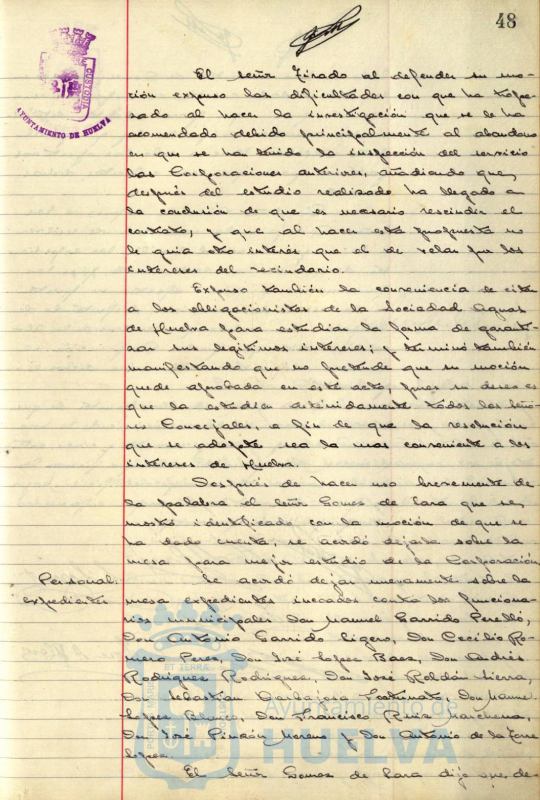 48
CUSTODIA
AYUNTAMIENTO DE HUELVA
El señor Tirado al defender su mo-
ción expuso las dificultades con que ha trope-
zado al hacer la investigación que se le ha
encomendado debido principalmente al abandono
en que se han tenido la inspección del servicio
las Corporaciones anteriores, añadiendo que,
después del estudio realizado ha llegado a
la conclusión de que es necesario rescindir el
contrato, y que al hacer esta propuesta no
le guia otro interés que el de velar por los
intereses del vecindario.
Expuso también la conveniencia de citar
a los obligacionistas de la Sociedad Aguas
de Huelva para estudiar la forma de garanti-
zar sus legítimos intereses; y terminó también
manifestando que no pretende que su moción
quede aprobada en este acto, pues su deseo es
que la estudien detenidamente todos los Seño-
res Concejales, a fin de que la resolución
que se adopte sea la mas conveniente a los
intereses de Huelva.
Después de hacer uso brevemente de
la palabra el Señor Gomez de Cara que se
mostró identificado con la moción de que se
ha dado cuenta, se acordó dejarla sobre la
mesa para mejor estudio de la Corporación
Personal: Se acordó dejar nuevamente sobre la
expedientes mesa expedientes incoados contra los funciona-
rios municipales Don Manuel Garrido Perelló,
Don Antonio Garrido Ligero, Don Cecilio Ro-
mero Perez, Don José Lopez Baez, Don Andrés
Rodriguez Rodriguez, Don José Roldán Sierra,
Don Sebastian Carbajosa Fortunato, Don Manuel
Lopez Blanco, Don Francisco Ruiz Marchena,
Don José Pinzón Moreno y Don Antonio de la Torre
Lopez.
El Señor Gomez de Cara dijo que de-
Ayuntamiento de
HUELVA